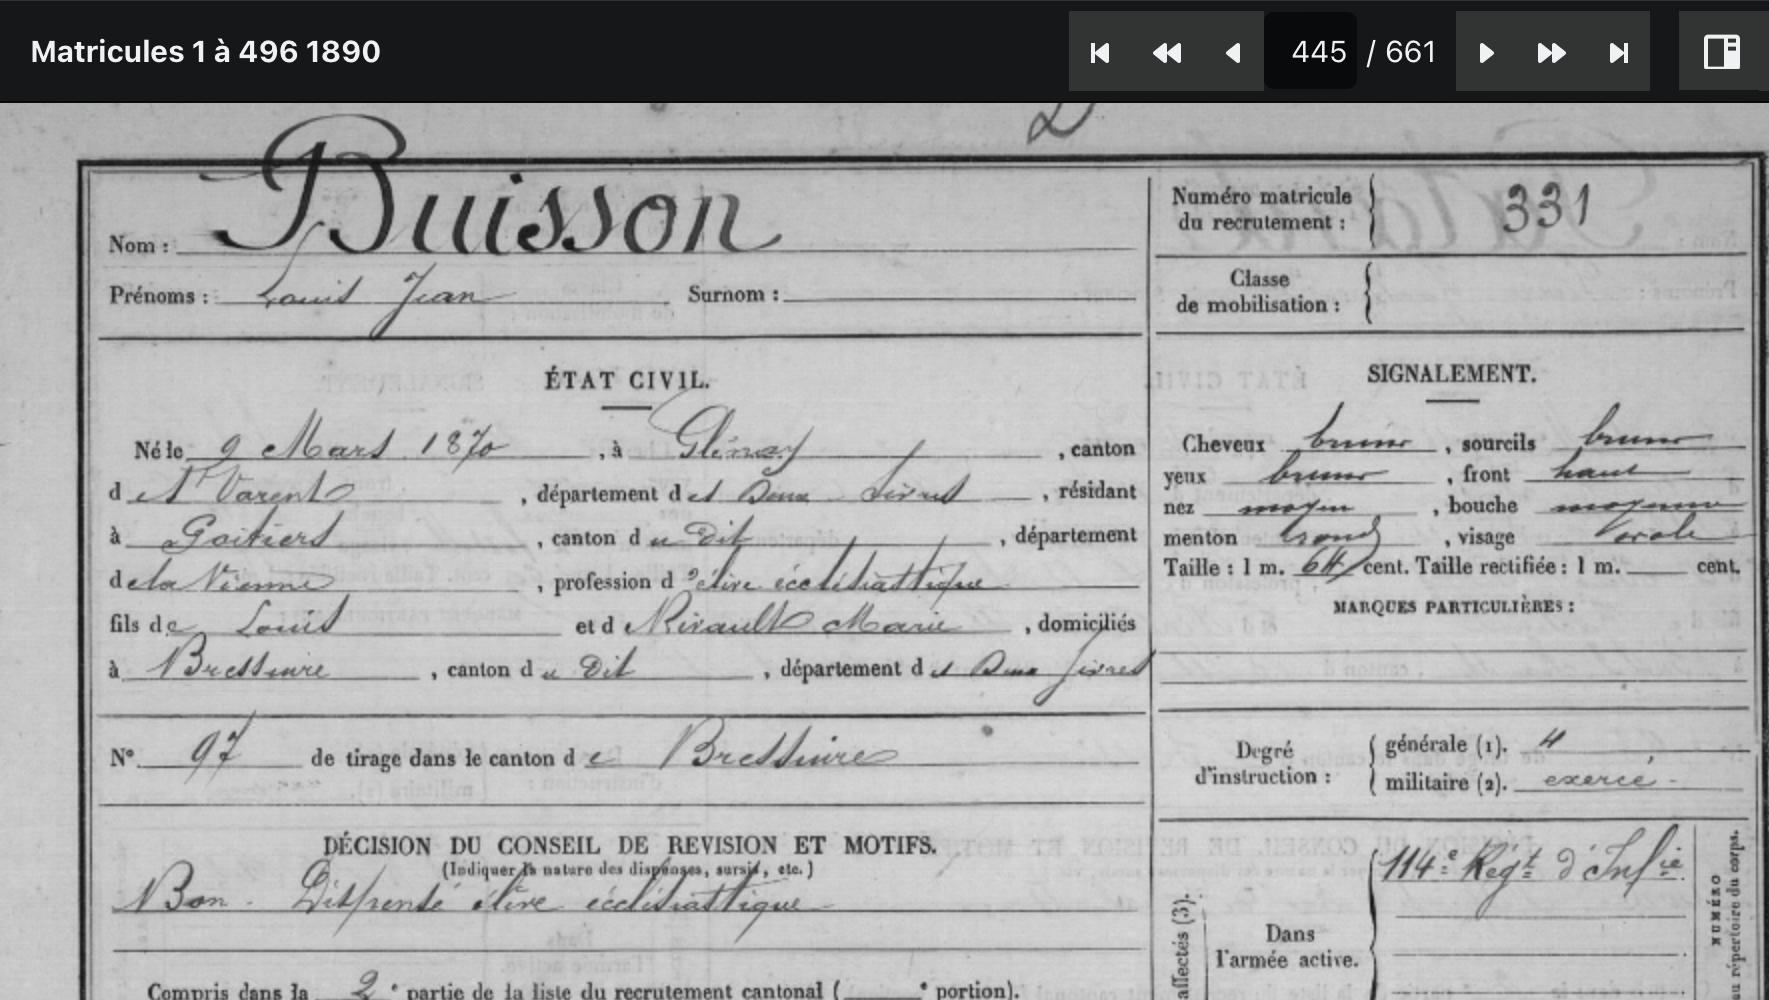 Matricules 1 à 496 1890
445 / 661
Buisson
Nom :
Prénoms : Louis Jean Surnom :
Numéro matricule du recrutement : 331
Classe de mobilisation :
ÉTAT CIVIL.
Né le 9 Mars 1870, à Glénay, canton
d e St Varent, département des Deux Sèvres, résidant
à Poitiers, canton du Dit, département
de la Vienne, profession d'élève écclésiastique
fils de Louis et d Nivault Marie, domiciliés
à Bressuire, canton du Dit, département des Deux Sèvres
N° 97 de tirage dans le canton de Bressuire
DÉCISION DU CONSEIL DE REVISION ET MOTIFS.
(Indiquer la nature des dispenses, sursis, etc.)
Bon. Dispensé élève écclésiastique
Compris dans la 2e partie de la liste du recrutement cantonal ( e portion).
SIGNALEMENT.
Cheveux bruns, sourcils bruns
yeux bruns, front haut
nez moyen, bouche moyenne
menton rond, visage ovale
Taille : 1 m. 64 cent. Taille rectifiée : 1 m. cent.
MARQUES PARTICULIÈRES :
Degré d'instruction :
générale (1). 4
militaire (2). exercé.
114e Regt d'Infie
Dans l'armée active.
affectés (3).
NUMÉRO
au répertoire du corps.